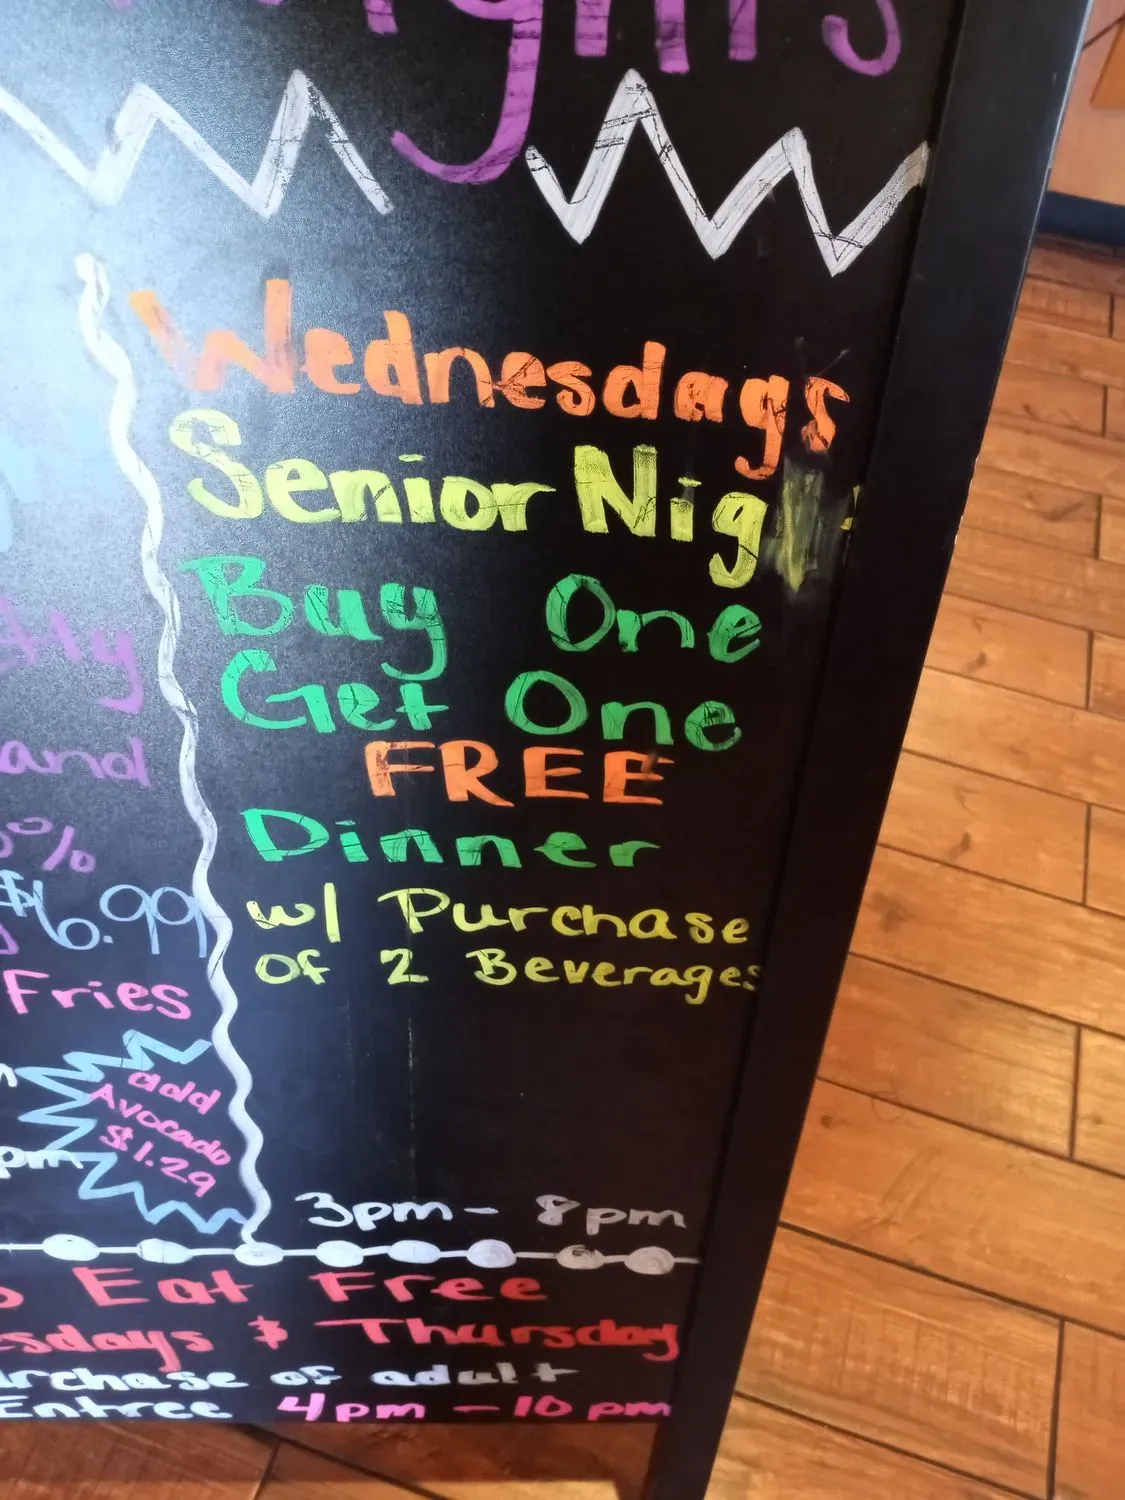 Wednesdays
Senior Nig
Buy One
Get One
FREE
Dinner
w/ Purchase
of 2 Beverages
3pm - 8pm
and
%
$6.99
Fries
add
Avocado
$1.29
pm
Eat Free
& Thursday
of adult
Entree 4pm - 10pm